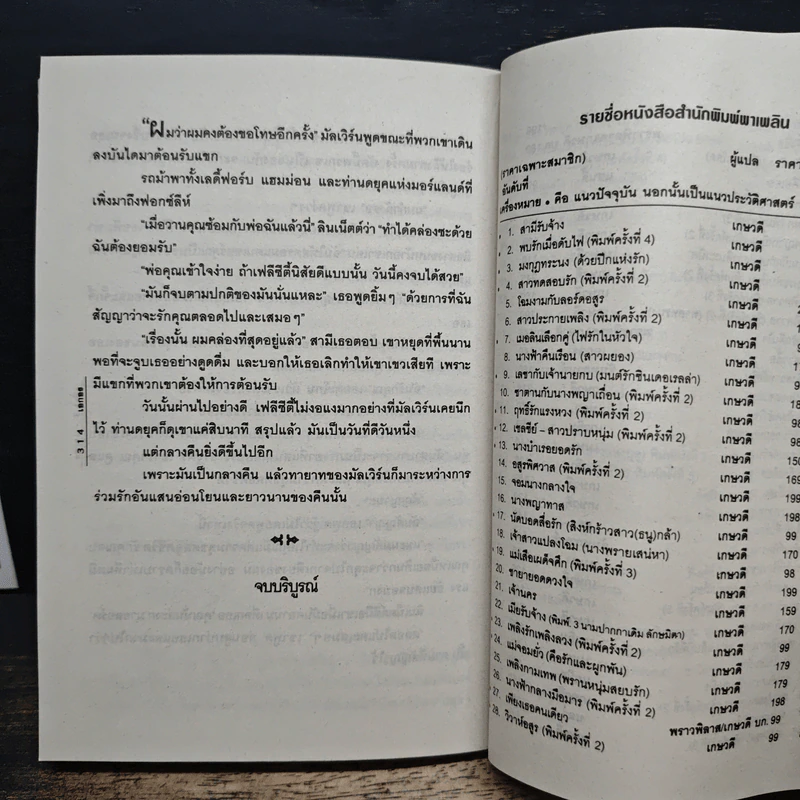 "ผมว่าผมคงต้องขอโทษอีกครั้ง" มัลเวิร์นพูดขณะที่พวกเขาเดิน
ลงบันไดมาต้อนรับแขก
รถม้าพาทั้งเลดี้ฟอร์บ แฮมม่อน และท่านดยุคแห่งมอร์แลนด์ที่
เพิ่งมาถึงฟอกซ์ลีห์
"เมื่อวานคุณซ้อมกับพ่อฉันแล้วนี่" ลินเน็ตต์ว่า "ทำได้คล่องซะด้วย
ฉันต้องยอมรับ"
"พ่อคุณเข้าใจง่าย ถ้าเฟลิซิตี้นิสัยดีแบบนั้น วันนี้คงจบได้สวย"
"มันก็จบตามปกติของมันนั่นแหละ" เธอพูดยิ้มๆ "ด้วยการที่ฉัน
สัญญาว่าจะรักคุณตลอดไปและเสมอๆ"
"เรื่องนั้น ผมคล่องที่สุดอยู่แล้ว" สามีเธอตอบ เขาหยุดที่พื้นนาน
พอที่จะจูบเธออย่างดูดดื่ม และบอกให้เธอเลิกทำให้เขาเขวเสียที เพราะ
มีแขกที่พวกเขาต้องให้การต้อนรับ
วันนั้นผ่านไปอย่างดี เฟลิซิตี้ไม่งอแงมากอย่างที่มัลเวิร์นเคยนึก
ไว้ ท่านดยุคก็ดุเขาแค่สิบนาที สรุปแล้ว มันเป็นวันที่ดีวันหนึ่ง
แต่กลางคืนยิ่งดีขึ้นไปอีก
เพราะมันเป็นกลางคืน แล้วทายาทของมัลเวิร์นก็มาระหว่างการ
ร่วมรักอันแสนอ่อนโยนและยาวนานของคืนนั้น
จบบริบูรณ์
314 เอกอร
รายชื่อหนังสือสำนักพิมพ์พาเพลิน
(ราคาเฉพาะสมาชิก)
อันดับที่ ผู้แปล ราคา
เครื่องหมาย • คือ แนวปัจจุบัน นอกนั้นเป็นแนวประวัติศาสตร์
1. สามีรับจ้าง เกษวดี
2. พบรักเมื่อดับไฟ (พิมพ์ครั้งที่ 4) เกษวดี
3. มงกุฎทระนง (ด้วยปีกแห่งรัก) เกษวดี
4. สาวทดสอบรัก (พิมพ์ครั้งที่ 2) เกษวดี
5. โฉมงามกับลอร์ดอสูร เกษวดี
6. สาวประกายเพลิง (พิมพ์ครั้งที่ 2) เกษวดี
7. เมอลินเลือกคู่ (ไฟรักในหัวใจ) เกษวดี
8. นางฟ้าคืนเรือน (สาวผยอง) เกษวดี
9. เลขากับเจ้านายกบ (มนต์รักซินเดอเรลล่า) เกษวดี
10. ซาตานกับนางพญาเถื่อน (พิมพ์ครั้งที่ 2) เกษวดี
11. ฤทธิ์รักแรงหวง (พิมพ์ครั้งที่ 2) เกษวดี
12. เชลซีย์ - สาวปราบหนุ่ม (พิมพ์ครั้งที่ 2) เกษวดี
13. นางบำเรอยอดรัก เกษวดี
14. อสูรพิศวาส (พิมพ์ครั้งที่ 2) เกษวดี
15. จอมนางกลางใจ เกษวดี
16. นางพญาทาส เกษวดี 199
17. นัดบอดสื่อรัก (สิงห์กร้าวสาว(ธนู)กล้า) เกษวดี 198
18. เจ้าสาวแปลงโฉม (นางพรายเสน่หา) เกษวดี 99
19. แม่เสือเผด็จศึก (พิมพ์ครั้งที่ 3) เกษวดี 170
20. ชายายอดดวงใจ เกษวดี 98
21. เจ้านคร เกษวดี 199
22. เมียรับจ้าง (พิมพ์ 3 นามปากกาเดิม ลักษมิตา) เกษวดี 159
23. เพลิงรักเพลิงลวง (พิมพ์ครั้งที่ 2) เกษวดี 170
24. แม่จอมยั่ว (คือรักและผูกพัน) เกษวดี 99
25. เพลิงกามเทพ (พรานหนุ่มสยบรัก) เกษวดี 179
26. นางฟ้ากลางมือมาร (พิมพ์ครั้งที่ 2) เกษวดี 179
27. เพียงเธอคนเดียว เกษวดี 198
28. วิวาห์อสูร (พิมพ์ครั้งที่ 2) พราวพิลาส/เกษวดี บก. 99
เกษวดี 99